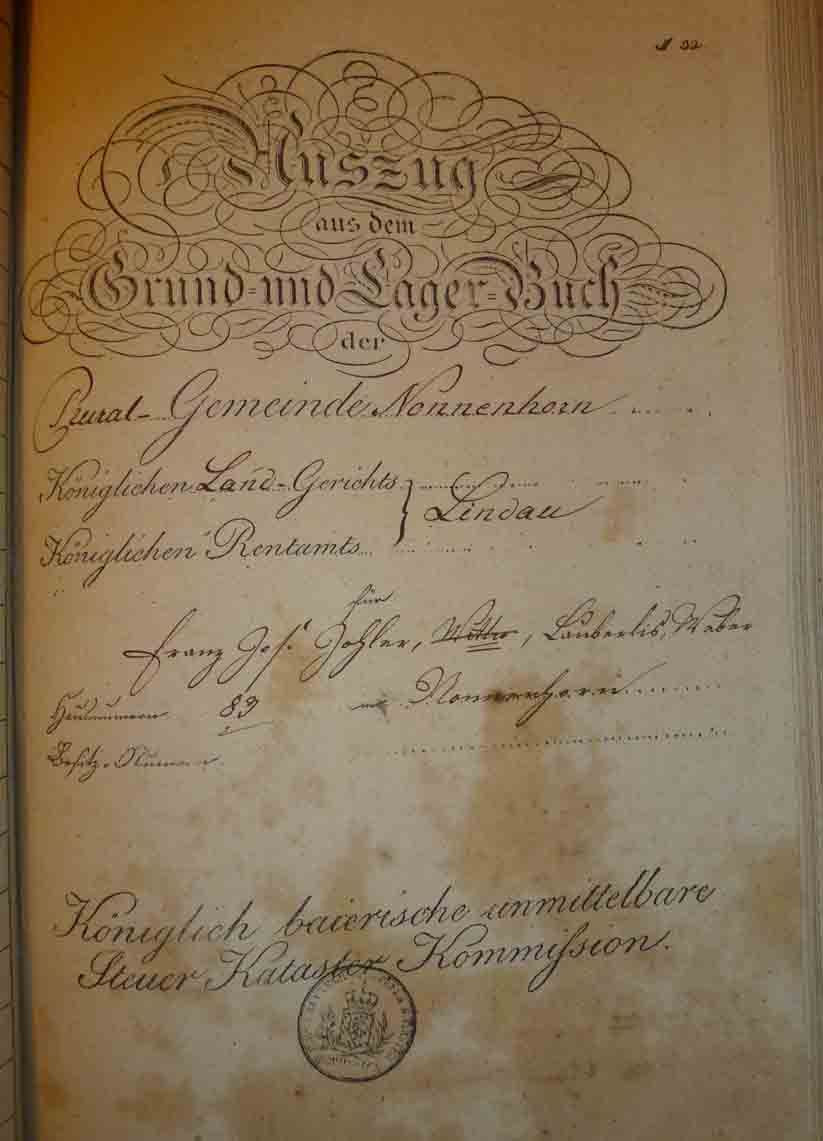 N. 32
Auszug
aus dem
Grund- und Lager-Buch
der
Rural-Gemeinde Nonnenhorn
Königlichen Land-Gerichts
Lindau
Königlichen Rentamts
für
Franz Jos. Zohler, Laüberlis, Weber
Hausnumern 83 Nonnenhorn
Besitz-Numern
Königlich baierische unmittelbare
Steuer Kataster Kommißion.